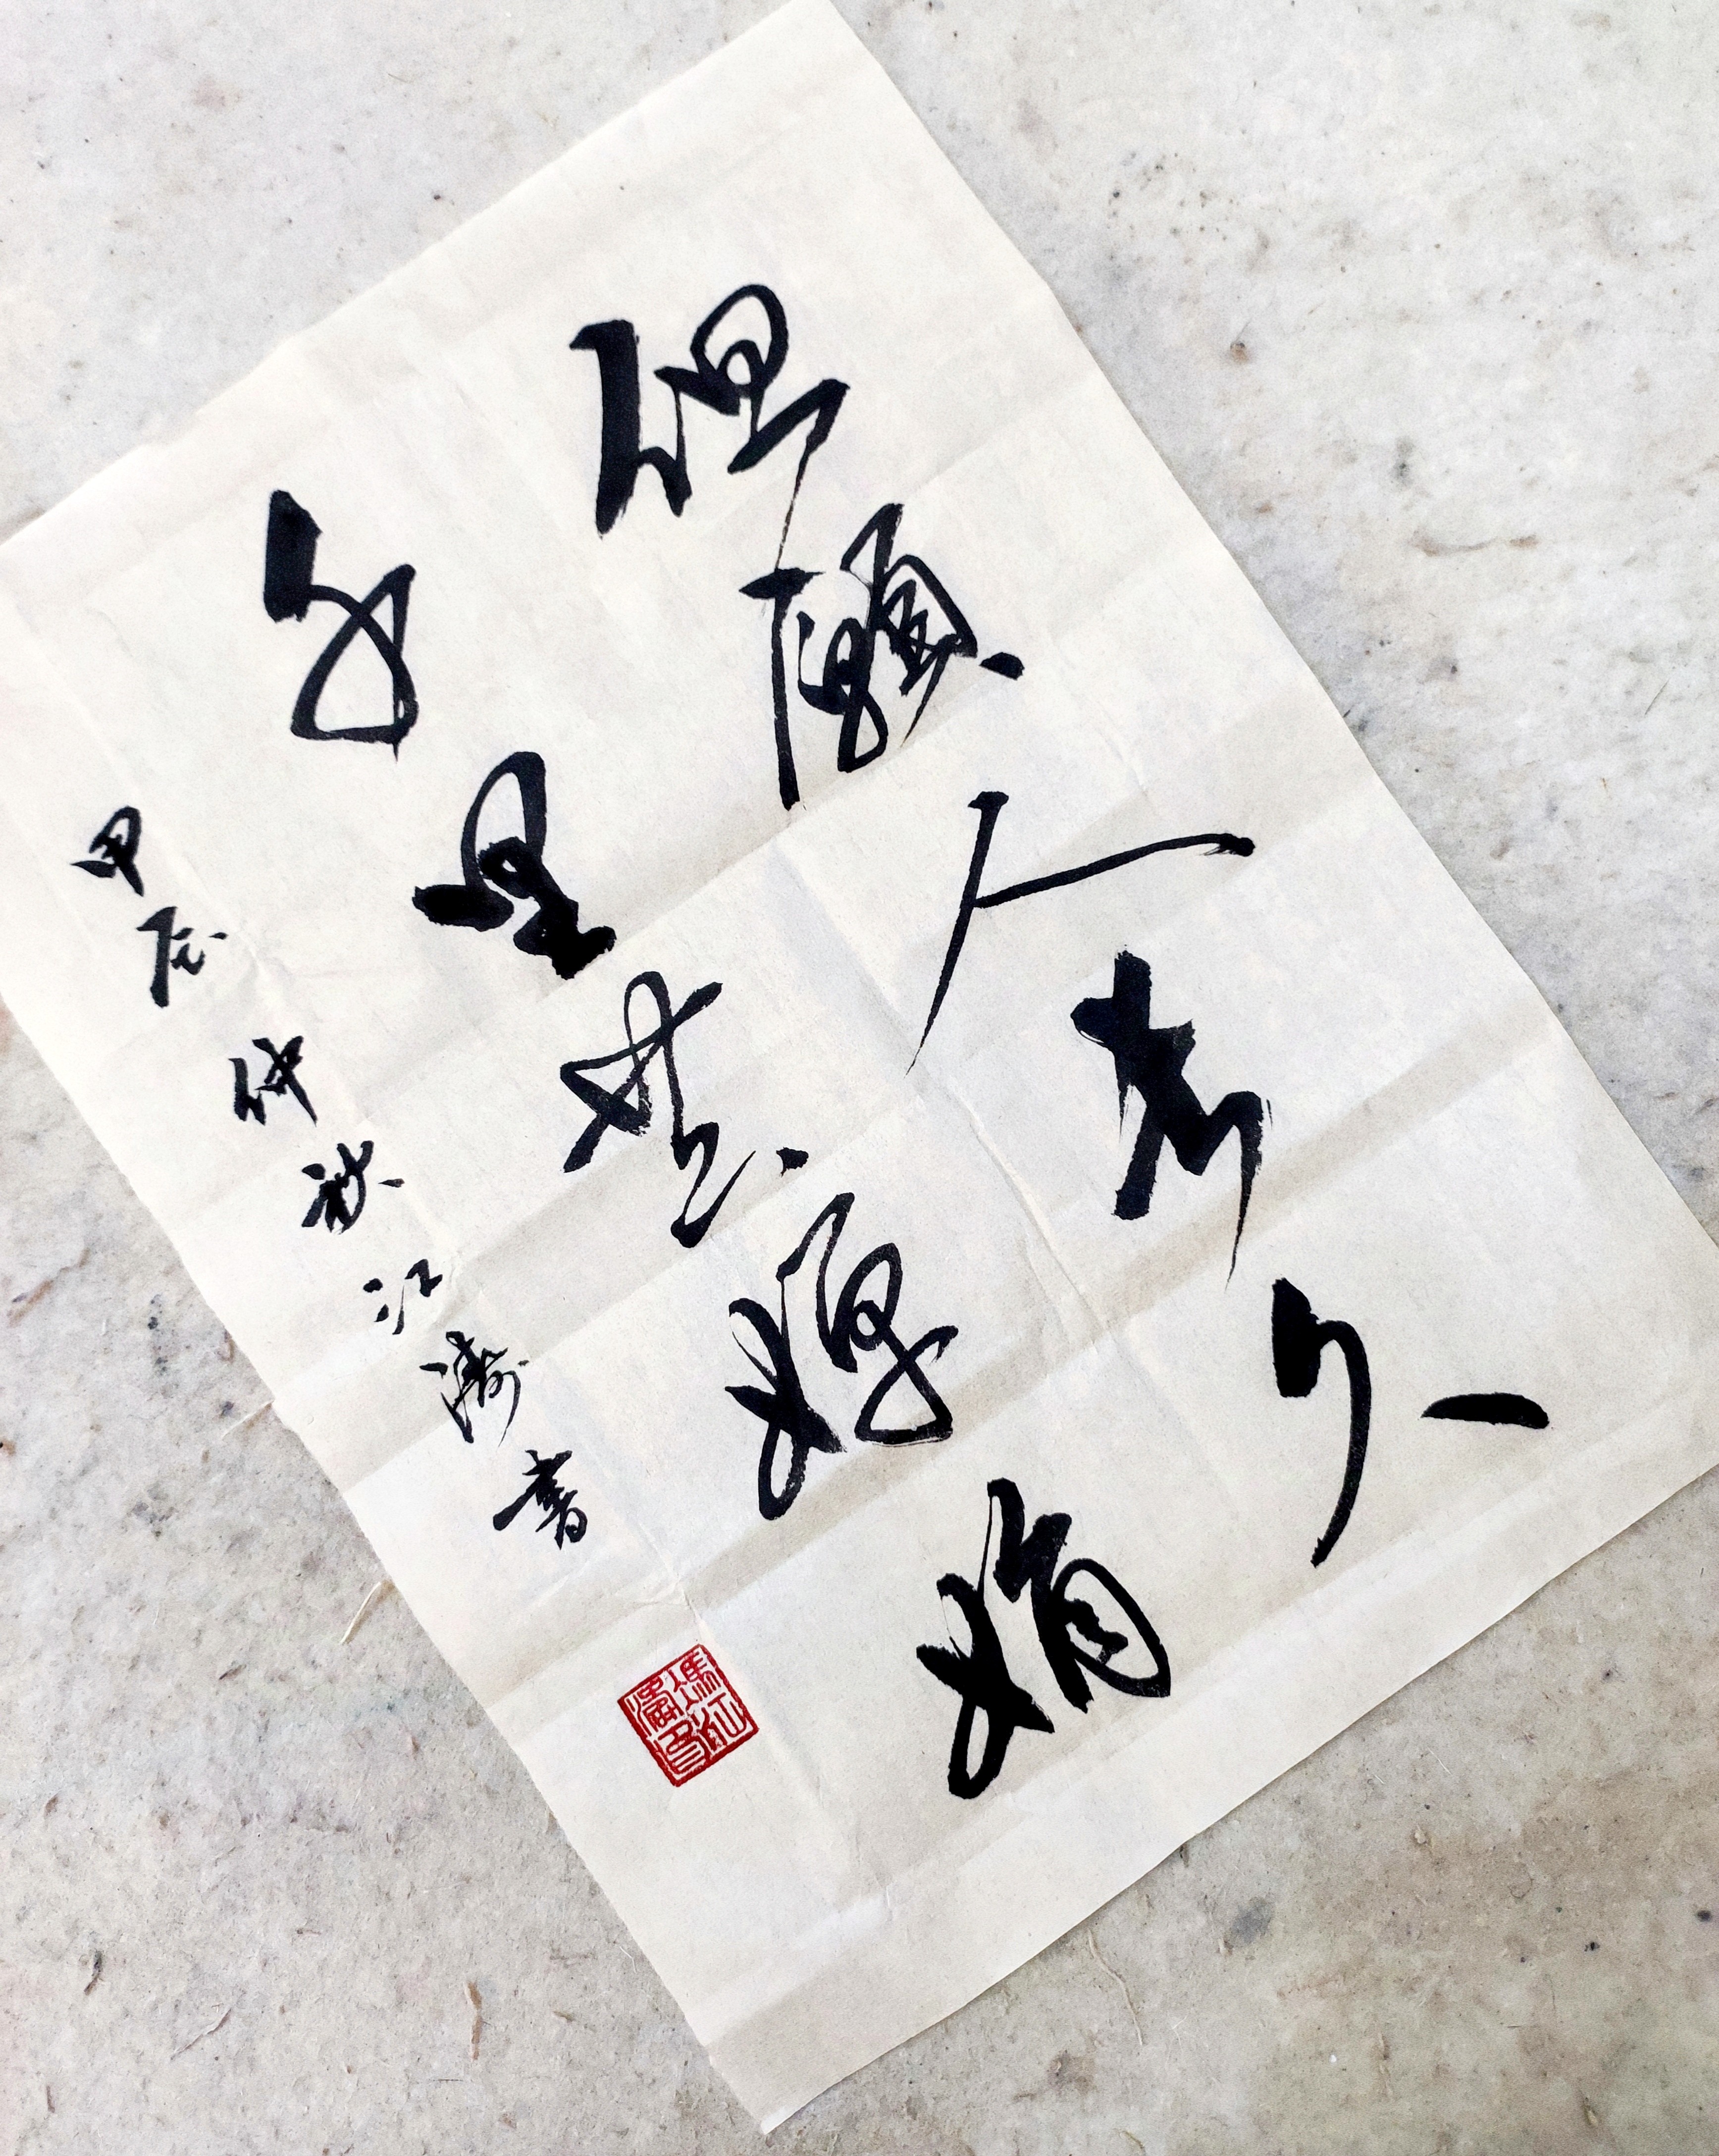 但願人長久
千里共嬋娟
甲辰仲秋江濤書
馮江濤印